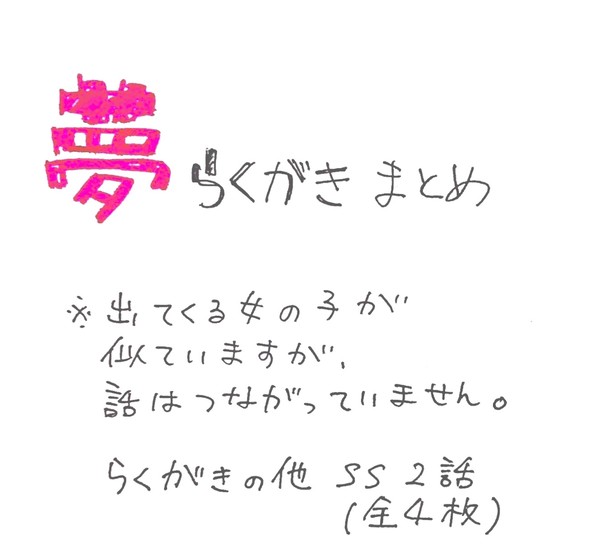 夢らくがきまとめ
※出てくる女の子が
似ていますが、
話はつながっていません。
らくがきの他 SS2話
(全4枚)